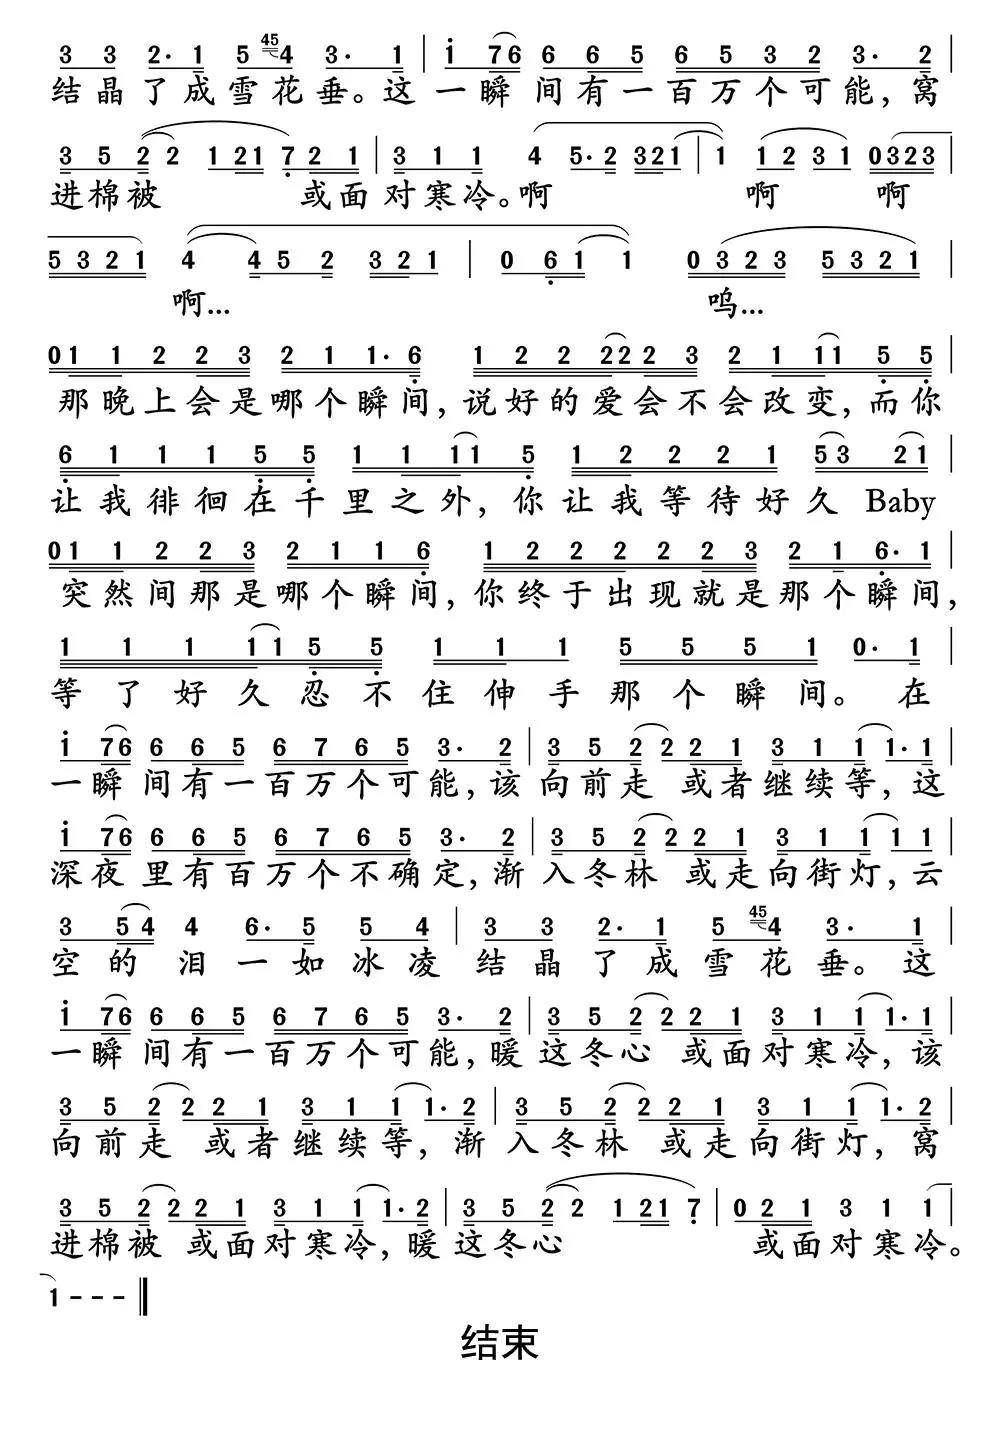 3 3 2· 1 5 45 4 3· 1 | 1 76 6 6 5 6 5 3 2 3· 2 |
结晶了成雪花垂。这一瞬间有一百万个可能，窝
3 5 2 2 1 21 7 2 1 | 3 1 1 4 5· 2 321 | 1 1 2 3 1 0323
进棉被 或面对寒冷。啊 啊 啊
5 3 2 1 4 4 5 2 3 2 1 | 0 6 1 1 0 3 2 3 5 3 2 1 |
啊... 呜...
0 1 1 2 2 3 2 1 1· 6 1 2 2 2 2 2 3 2 1 1 1 5 5 |
那晚上会是哪个瞬间，说好的爱会不会改变，而你
6 1 1 1 5 5 1 1 1 1 5 1 2 2 2 1 5 3 2 1 |
让我徘徊在千里之外，你让我等待好久 Baby
0 1 1 2 2 3 2 1 1 6 1 2 2 2 2 2 3 2 1 6· 1 |
突然间那是哪个瞬间，你终于出现就是那个瞬间，
1 1 1 1 1 5 5 1 1 1 5 5 5 1 0· 1 |
等了好久忍不住伸手那个瞬间。在
1 76 6 6 5 6 7 6 5 3· 2 | 3 5 2 2 2 1 3 1 1 1· 1 |
一瞬间有一百万个可能，该向前走 或者继续等，这
1 76 6 6 5 6 7 6 5 3· 2 | 3 5 2 2 2 1 3 1 1 1 1 |
深夜里有百万个不确定，渐入冬林 或走向街灯，云
3 5 4 4 6· 5 5 4 | 3 3 2· 1 5 45 4 3· 1 |
空的泪一如冰凌结晶了成雪花垂。这
1 76 6 6 5 6 7 6 5 3· 2 | 3 5 2 2 2 1 3 1 1 1· 1 |
一瞬间有一百万个可能，暖这冬心 或面对寒冷，该
3 5 2 2 2 1 3 1 1 1· 2 | 3 5 2 2 2 1 3 1 1 1· 2 |
向前走 或者继续等，渐入冬林 或走向街灯，窝
3 5 2 2 2 1 3 1 1 1· 2 | 3 5 2 2 1 21 7 | 0 2 1 3 1 1 |
进棉被 或面对寒冷，暖这冬心 或面对寒冷。
1 - - - ‖
结束